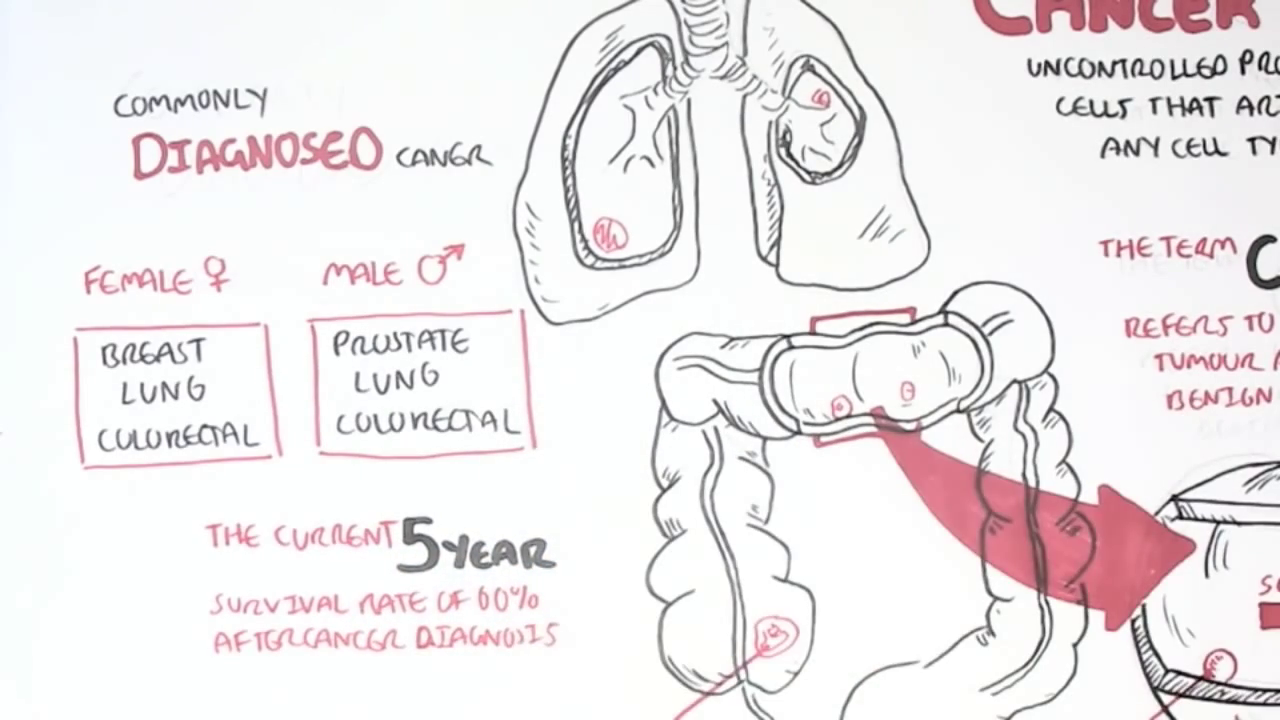 COMMONLY
DIAGNOSED CANCER
FEMALE ♀
BREAST
LUNG
COLORECTAL
MALE ♂
PROSTATE
LUNG
COLORECTAL
THE CURRENT 5 YEAR
SURVIVAL RATE OF 60%
AFTER CANCER DIAGNOSIS
CANCER
UNCONTROLLED PRO
CELLS THAT ARI
ANY CELL TY
THE TERM C
REFERS TO
TUMOUR
BENIGN